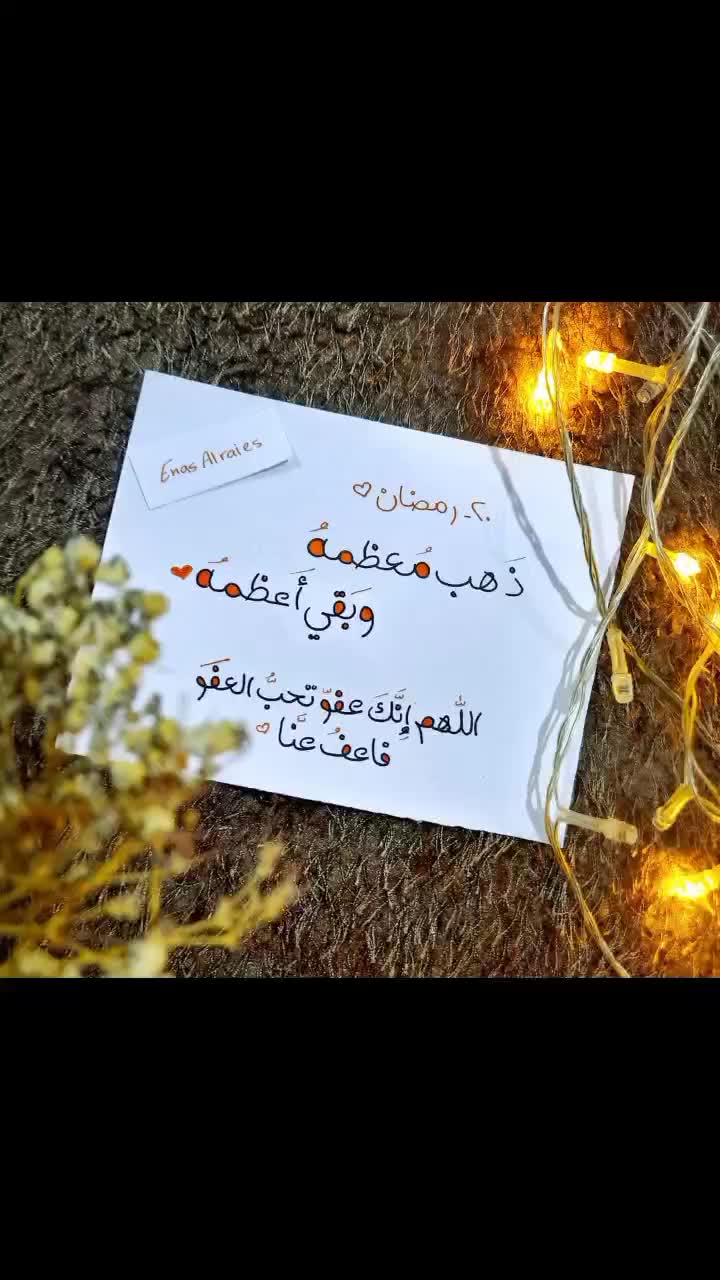 Enas Alraies
٢٠-رمضان
ذَهب مُعظمهُ
وَبقي أَعظمُهُ
اللّٰهم إِنَّكَ عفوّ تحبُّ العفَو
فاعفُ عنَّا